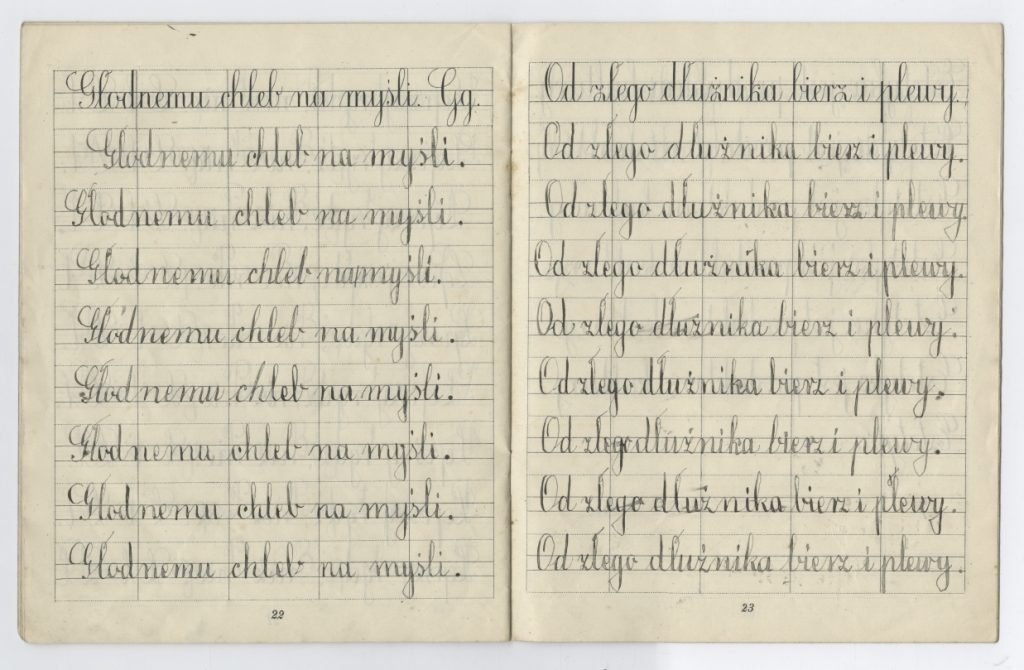 Głodnemu chleb na myśli. Gg.
Głodnemu chleb na myśli.
Głodnemu chleb na myśli.
Głodnemu chleb na myśli.
Głodnemu chleb na myśli.
Głodnemu chleb na myśli.
Głodnemu chleb na myśli.
Głodnemu chleb na myśli.
Głodnemu chleb na myśli.
22
Od złego dłużnika bierz i plewy.
Od złego dłużnika bierz i plewy.
Od złego dłużnika bierz i plewy.
Od złego dłużnika bierz i plewy.
Od złego dłużnika bierz i plewy.
Od złego dłużnika bierz i plewy.
Od złego dłużnika bierz i plewy.
Od złego dłużnika bierz i plewy.
Od złego dłużnika bierz i plewy.
23